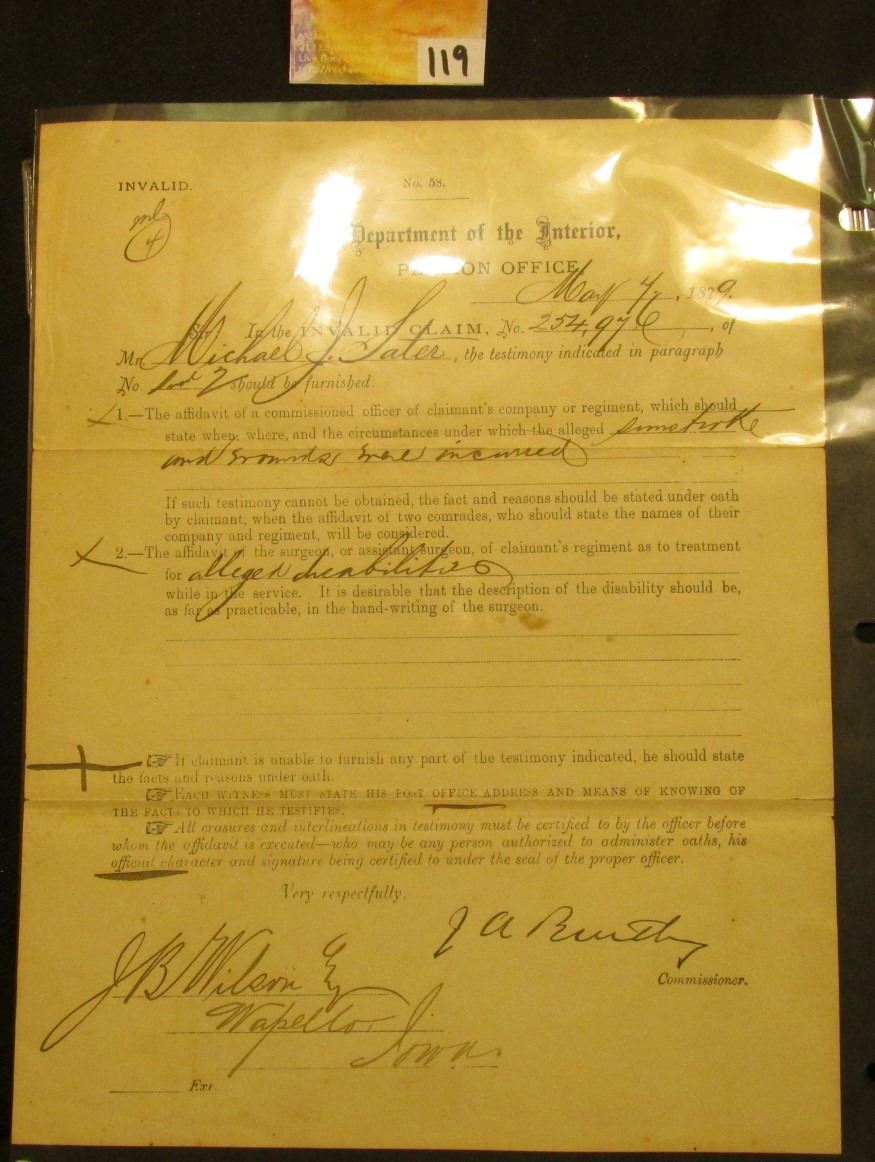 119
INVALID.
No. 58.
4
Department of the Interior,
PENSION OFFICE,
May 7, 1879.
Sir: In the INVALID CLAIM, No. 254,976, of
Mr. Michael J. Sater, the testimony indicated in paragraph
No. 1 and 2 should be furnished.
1.—The affidavit of a commissioned officer of claimant's company or regiment, which should
state when, where, and the circumstances under which the alleged sunstroke
and wounds were incurred
If such testimony cannot be obtained, the fact and reasons should be stated under oath
by claimant, when the affidavit of two comrades, who should state the names of their
company and regiment, will be considered.
2.—The affidavit of the surgeon, or assistant surgeon, of claimant's regiment as to treatment
for alleged disabilities
while in the service. It is desirable that the description of the disability should be,
as far as practicable, in the hand-writing of the surgeon.
☞ If claimant is unable to furnish any part of the testimony indicated, he should state
the facts and reasons under oath.
☞ EACH WITNESS MUST STATE HIS POST OFFICE ADDRESS AND MEANS OF KNOWING OF
THE FACTS TO WHICH HE TESTIFIES.
☞ All erasures and interlineations in testimony must be certified to by the officer before
whom the affidavit is executed—who may be any person authorized to administer oaths, his
official character and signature being certified to under the seal of the proper officer.
Very respectfully,
J A Bentley
Commissioner.
J B Wilson Esq
Wapello,
Iowa.
Exr.